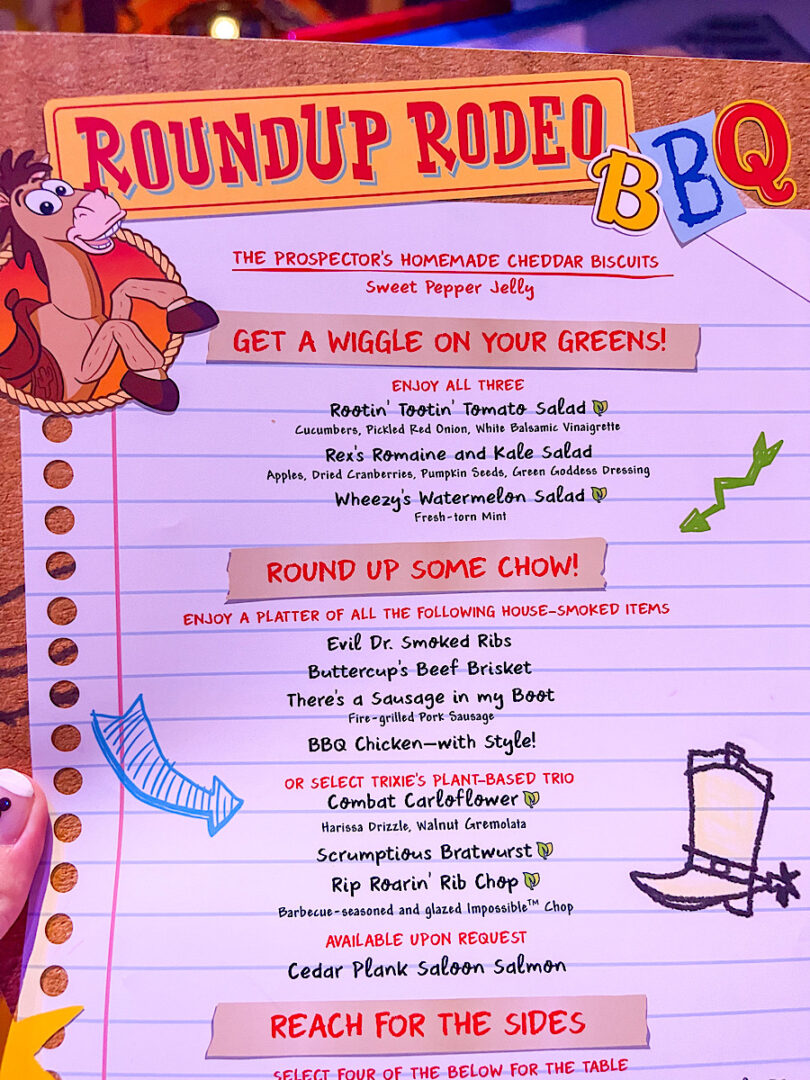 ROUNDUP RODEO
BBQ
THE PROSPECTOR'S HOMEMADE CHEDDAR BISCUITS
Sweet Pepper Jelly
GET A WIGGLE ON YOUR GREENS!
ENJOY ALL THREE
Rootin' Tootin' Tomato Salad
Cucumbers, Pickled Red Onion, White Balsamic Vinaigrette
Rex's Romaine and Kale Salad
Apples, Dried Cranberries, Pumpkin Seeds, Green Goddess Dressing
Wheezy's Watermelon Salad
Fresh-torn Mint
ROUND UP SOME CHOW!
ENJOY A PLATTER OF ALL THE FOLLOWING HOUSE-SMOKED ITEMS
Evil Dr. Smoked Ribs
Buttercup's Beef Brisket
There's a Sausage in my Boot
Fire-grilled Pork Sausage
BBQ Chicken—with Style!
OR SELECT TRIXIE'S PLANT-BASED TRIO
Combat Carloflower
Harissa Drizzle, Walnut Gremolata
Scrumptious Bratwurst
Rip Roarin' Rib Chop
Barbecue-seasoned and glazed Impossible™ Chop
AVAILABLE UPON REQUEST
Cedar Plank Saloon Salmon
REACH FOR THE SIDES
SELECT FOUR OF THE BELOW FOR THE TABLE